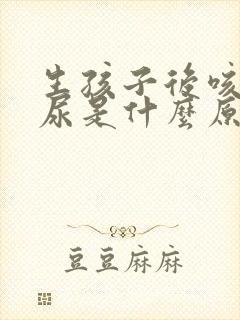 生孩子後咳
尿是什麼原
豆豆麻麻